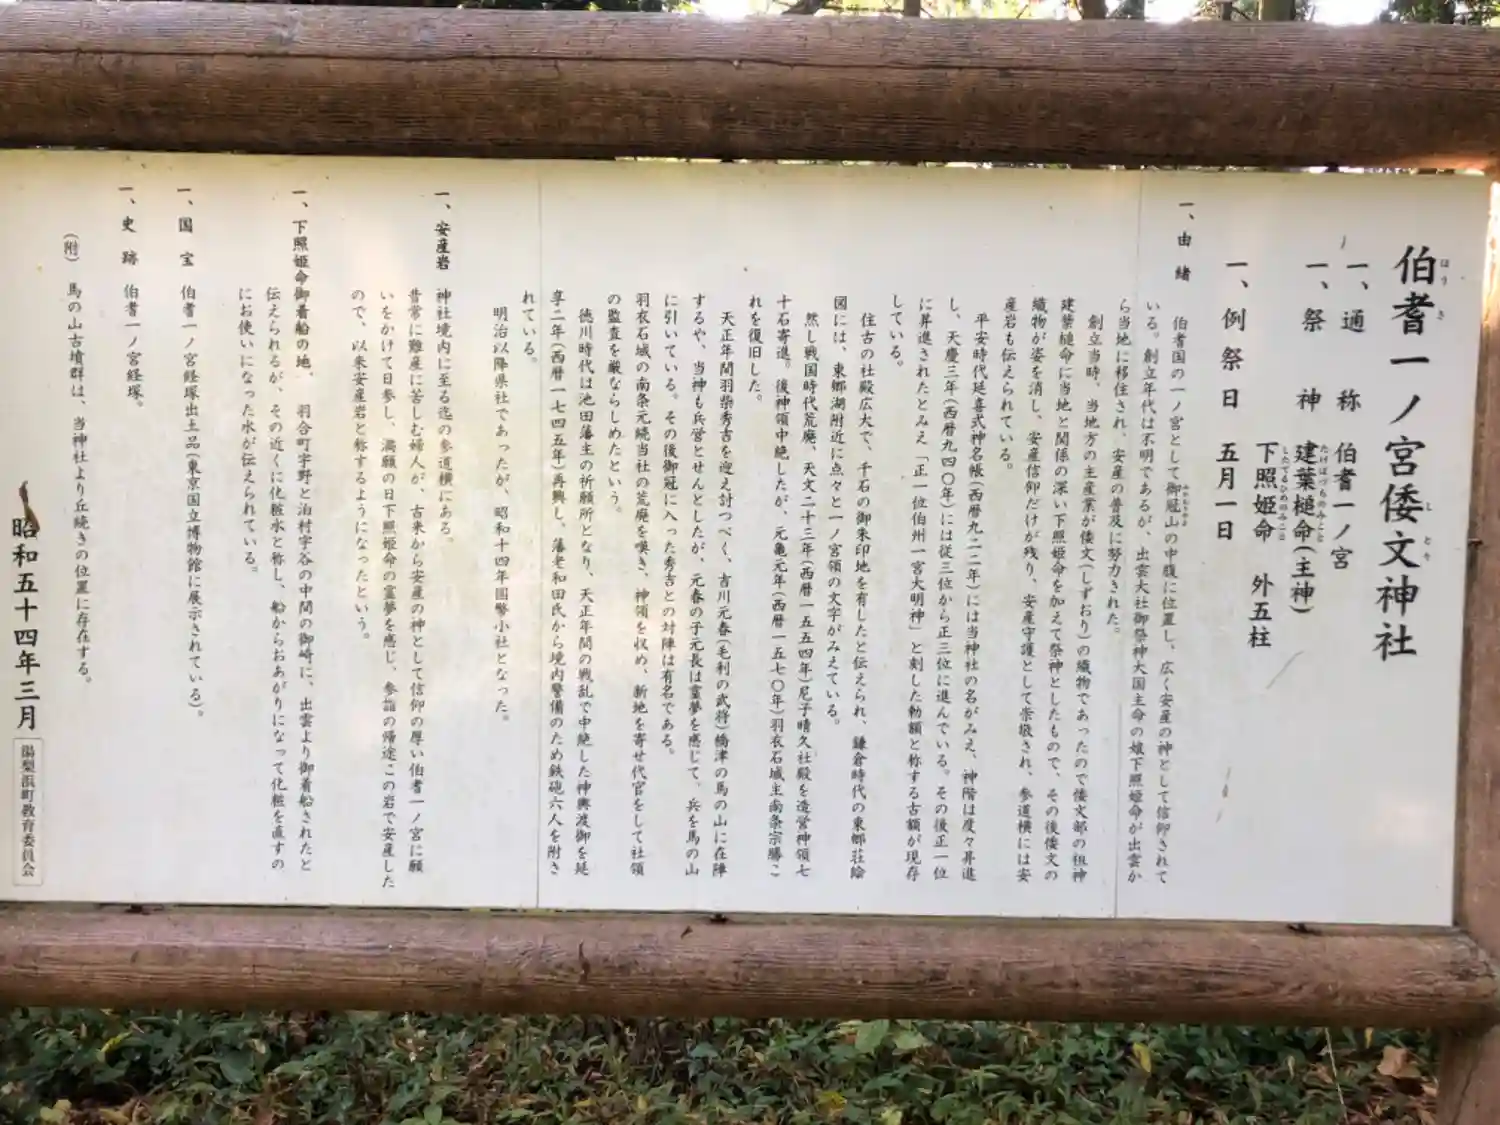 伯耆一ノ宮倭文神社
ほうき しとり
一、通称 伯耆一ノ宮
一、祭神 建葉槌命(主神)
たけはづちのみこと
下照姫命 外五柱
したてるひめのみこと
一、例祭日 五月一日
一、由緒
伯耆国の一ノ宮として御冠山の中腹に位置し、広く安産の神として信仰されて
いる。創立年代は不明であるが、出雲大社御祭神大国主命の娘下照姫命が出雲か
ら当地に移住され、安産の普及に努力された。
創立当時、当地方の主産業が倭文(しずおり)の織物であったので倭文部の祖神
建葉槌命に当地と関係の深い下照姫命を加えて祭神としたもので、その後倭文の
織物が姿を消し、安産信仰だけが残り、安産守護として崇敬され、参道横には安
産岩も伝えられている。
平安時代延喜式神名帳(西暦九二二年)には当神社の名がみえ、神階は度々昇進
し、天慶三年(西暦九四〇年)には従三位から正三位に進んでいる。その後正一位
に昇進されたとみえ「正一位伯州一宮大明神」と刻した勅額と称する古額が現存
している。
往古の社殿広大で、千石の御朱印地を有したと伝えられ、鎌倉時代の東郷荘絵
図には、東郷湖附近に点々と一ノ宮領の文字がみえている。
然し戦国時代荒廃、天文二十三年(西暦一五五四年)尼子晴久社殿を造営神領七
十石寄進。後神領中絶したが、元亀元年(西暦一五七〇年)羽衣石城主南条宗勝こ
れを復旧した。
天正年間羽柴秀吉を迎え討つべく、吉川元春(毛利の武将)橋津の馬の山に在陣
するや、当神も兵営とせんとしたが、元春の子元長は霊夢を感じて、兵を馬の山
に引いている。その後御冠に入った秀吉との対陣は有名である。
羽衣石城の南条元続当社の荒廃を嘆き、神領を収め、新地を寄せ代官をして社領
の監査を厳ならしめたという。
徳川時代は池田藩主の祈願所となり、天正年間の戦乱で中絶した神輿渡御を延
享二年(西暦一七四五年)再興し、藩老和田氏から境内警備のため鉄砲六人を附さ
れている。
明治以降県社であったが、昭和十四年国幣小社となった。
一、安産岩 神社境内に至る迄の参道横にある。
昔常に難産に苦しむ婦人が、古来から安産の神として信仰の厚い伯耆一ノ宮に願
いをかけて日参し、満願の日下照姫命の霊夢を感じ、参詣の帰途この岩で安産した
ので、以来安産岩と称するようになったという。
一、下照姫命御着船の地、 羽合町宇野と泊村宇谷の中間の御崎に、出雲より御着船されたと
伝えられるが、その近くに化粧水と称し、船からおあがりになって化粧を直すの
にお使いになった水が伝えられている。
一、国宝 伯耆一ノ宮経塚出土品(東京国立博物館に展示されている)。
一、史跡 伯耆一ノ宮経塚。
(附) 馬の山古墳群は、当神社より丘続きの位置に存在する。
昭和五十四年三月 湯梨浜町教育委員会